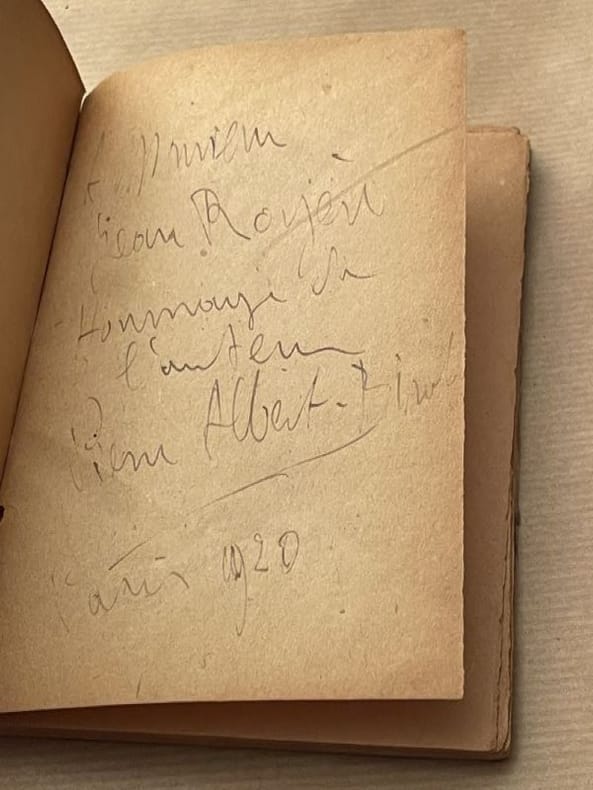 A Monsieur
Jean Royère
Hommage de
l'auteur
Pierre Albert-Birot
Paris 1920